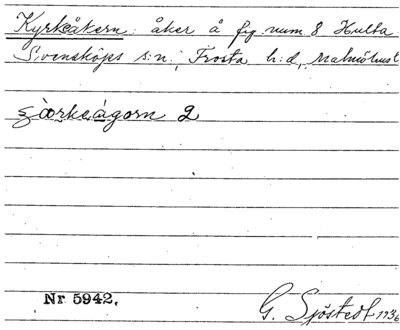 Kyrkeåkern: åker å fig. num. 8 Hulta
Svensköps s:n, Frosta h:d, Malmöhus l
ʒòrkeågorn 2
Nr 5942.
G. Sjöstedt 1936